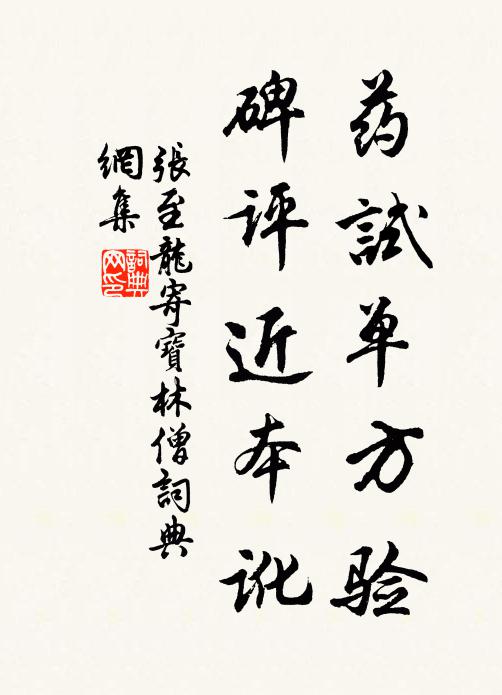 药試单方验
碑评近本訛
張至龍寄寶林僧詞典
網集
詞典
网印